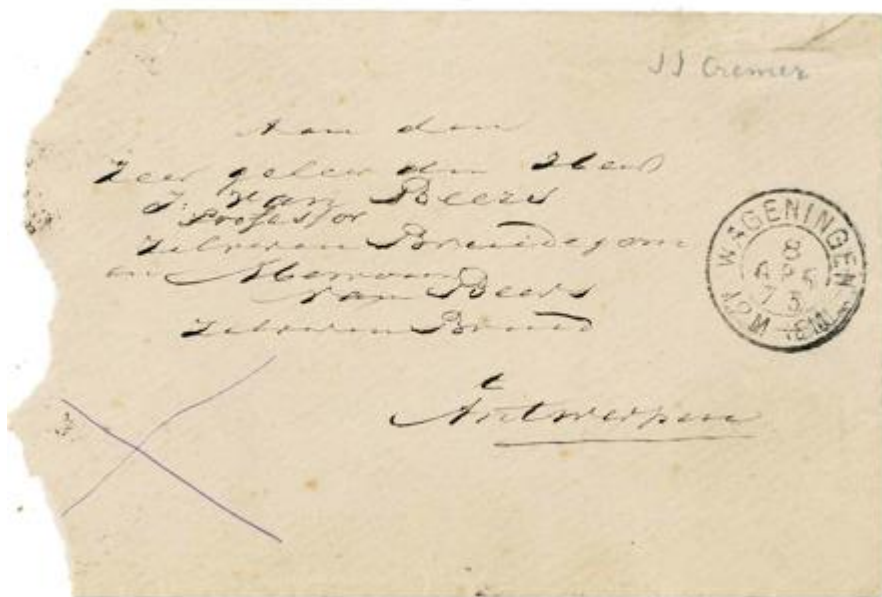 J J Cremer
Aan den
Zeer geleerden Heer
J. Van Beers
Professor
Zilveren Bruidegom
en Mevrouw
Van Beers
Zilveren Bruid
te
Antwerpen
WAGENINGEN
8
73